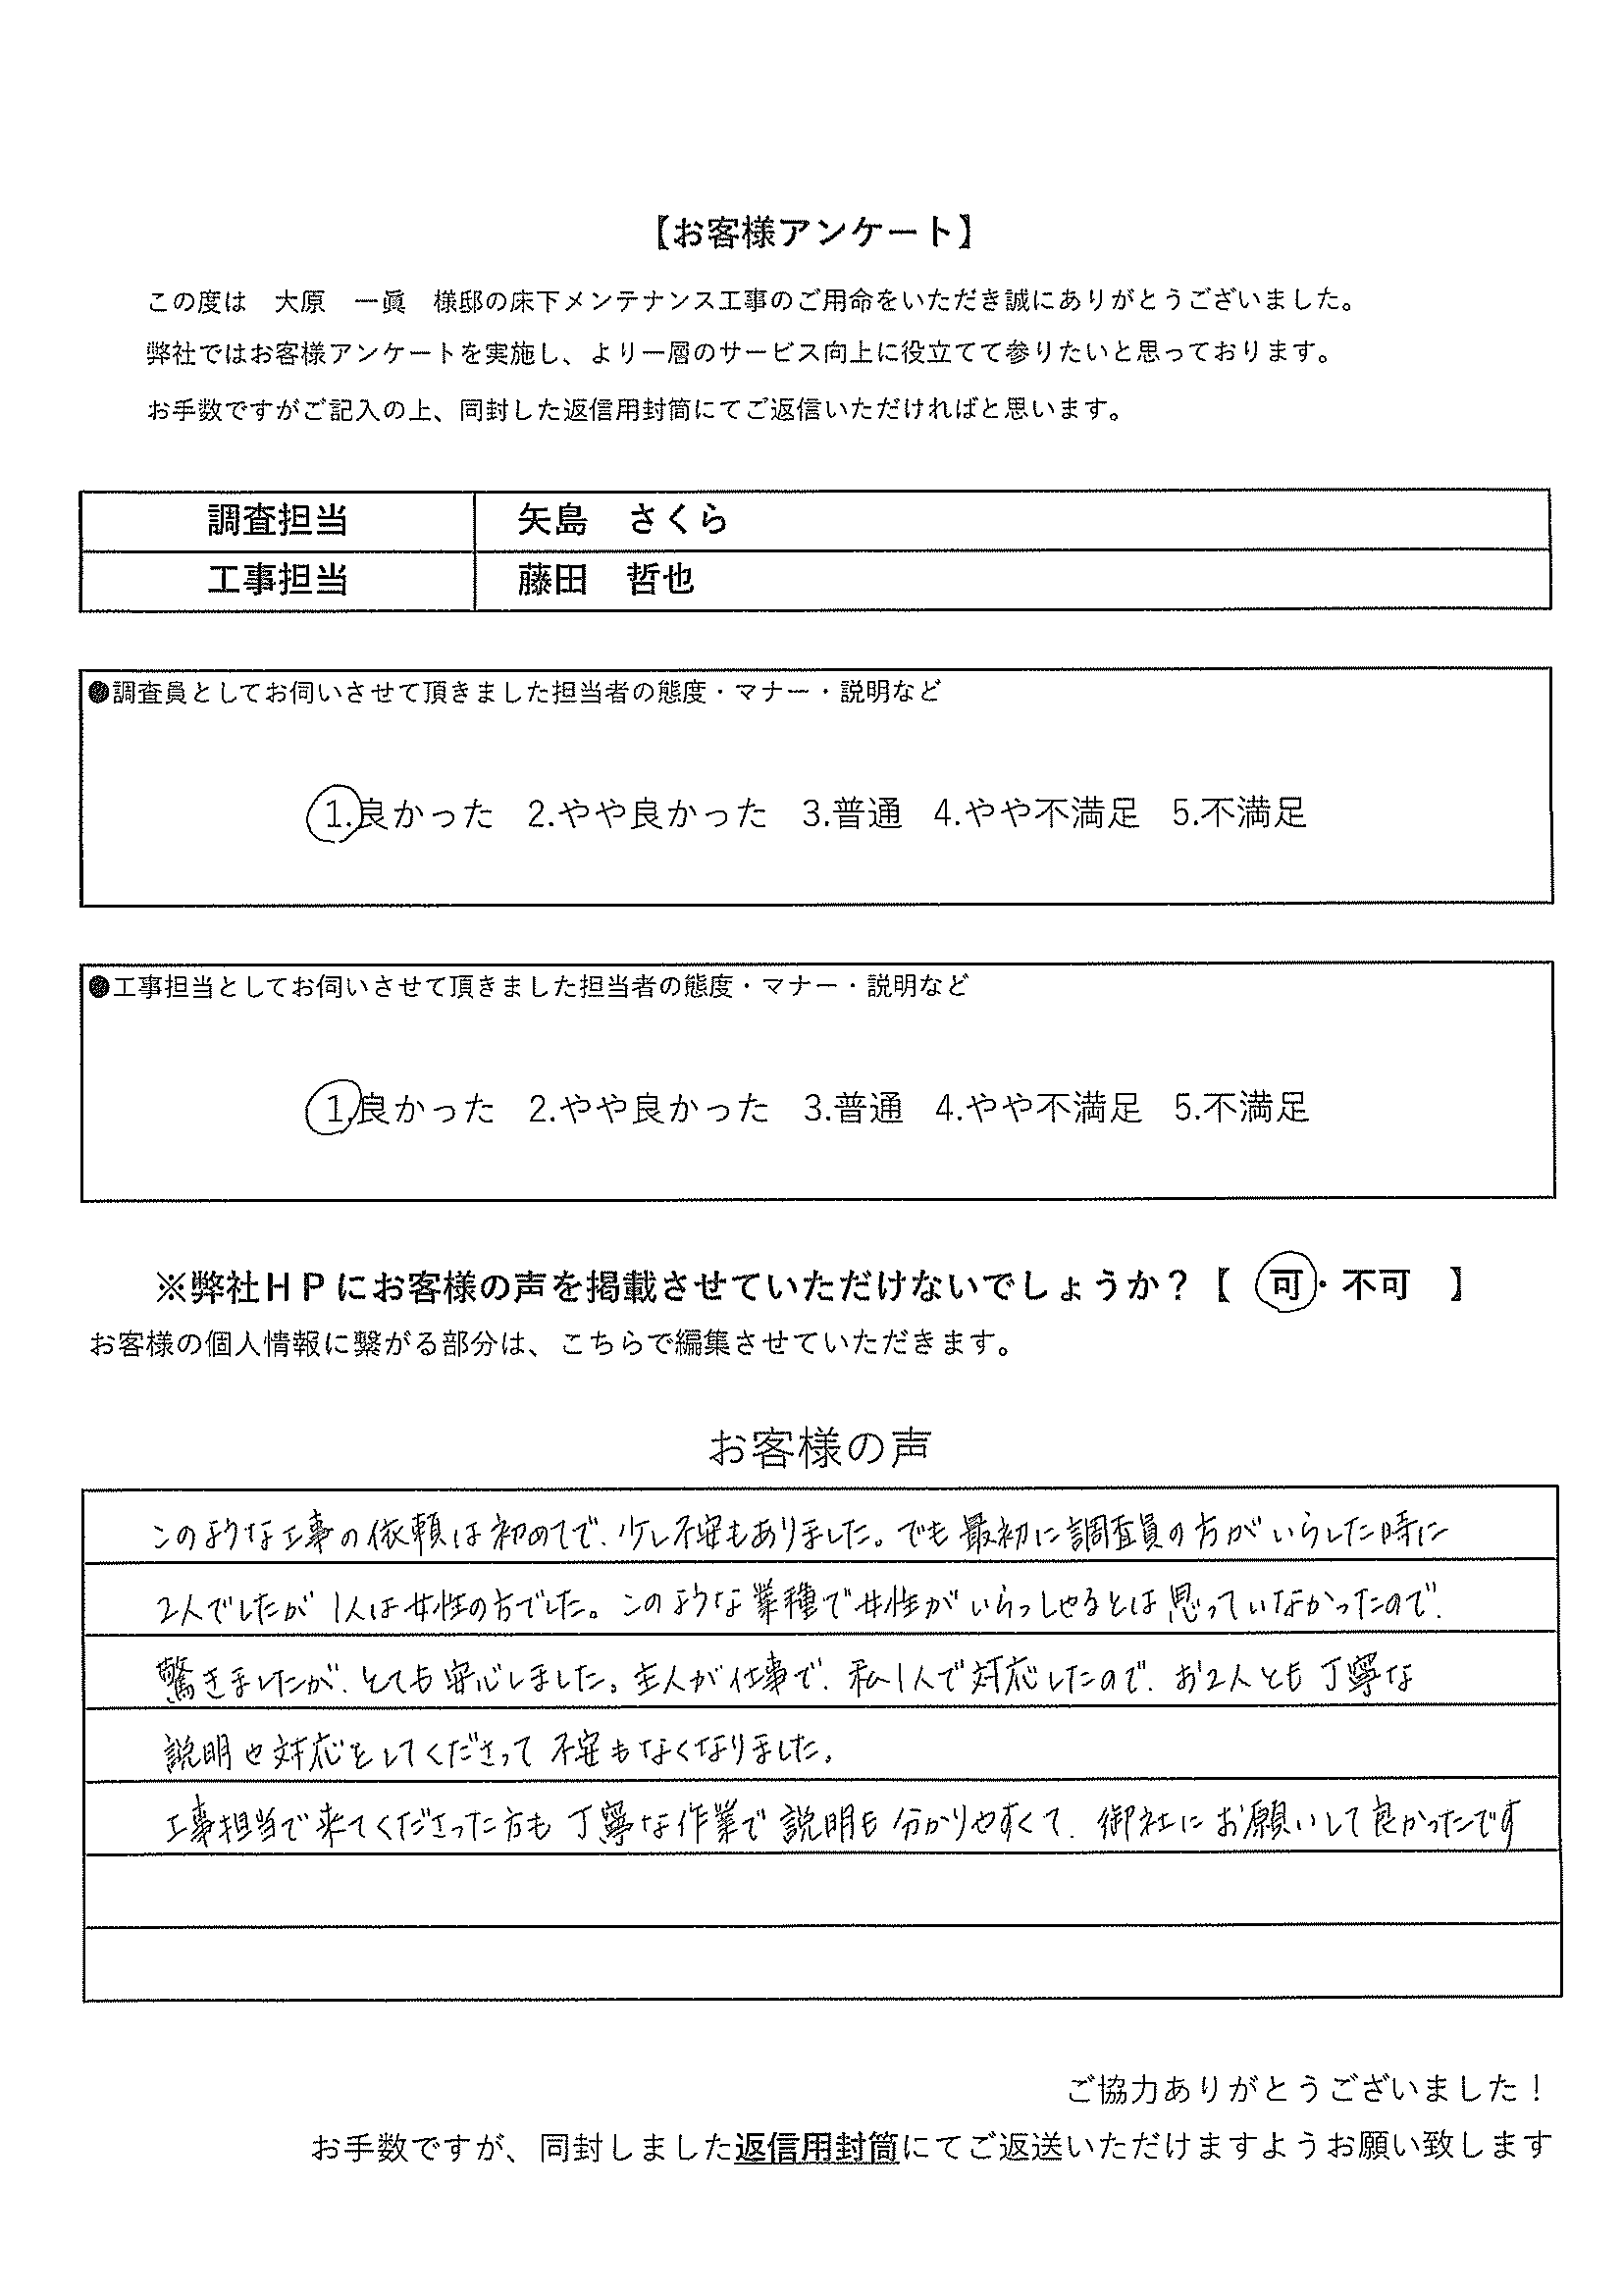 【お客様アンケート】
この度は　大原　一眞　様邸の床下メンテナンス工事のご用命をいただき誠にありがとうございました。
弊社ではお客様アンケートを実施し、より一層のサービス向上に役立てて参りたいと思っております。
お手数ですがご記入の上、同封した返信用封筒にてご返信いただければと思います。
調査担当　矢島　さくら
工事担当　藤田　哲也
●調査員としてお伺いさせて頂きました担当者の態度・マナー・説明など
1.良かった　2.やや良かった　3.普通　4.やや不満足　5.不満足
●工事担当としてお伺いさせて頂きました担当者の態度・マナー・説明など
1.良かった　2.やや良かった　3.普通　4.やや不満足　5.不満足
※弊社ＨＰにお客様の声を掲載させていただけないでしょうか？【　可・不可　】
お客様の個人情報に繋がる部分は、こちらで編集させていただきます。
お客様の声
このような工事の依頼は初めてで、少し不安もありました。でも最初に調査員の方がいらした時に
2人でしたが1人は女性の方でした。このような業種で女性がいらっしゃるとは思っていなかったので、
驚きましたが、とても安心しました。主人が仕事で、私1人で対応したので、お2人とも丁寧な
説明や対応をしてくださって不安もなくなりました。
工事担当で来てくださった方も丁寧な作業で説明も分かりやすくて、御社にお願いして良かったです
ご協力ありがとうございました！
お手数ですが、同封しました返信用封筒にてご返送いただけますようお願い致します